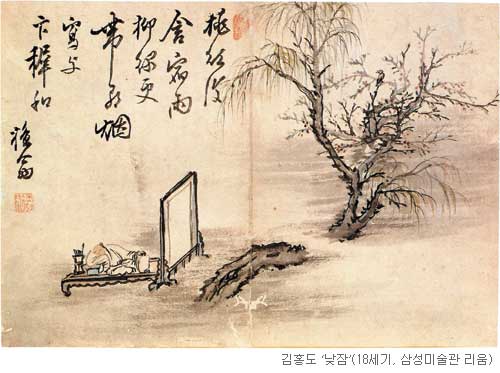 桃紅復
含宿雨
柳綠更
帶朝烟
寫与
卞穉和
檀翁
김홍도 '낮잠'(18세기, 삼성미술관 리움)